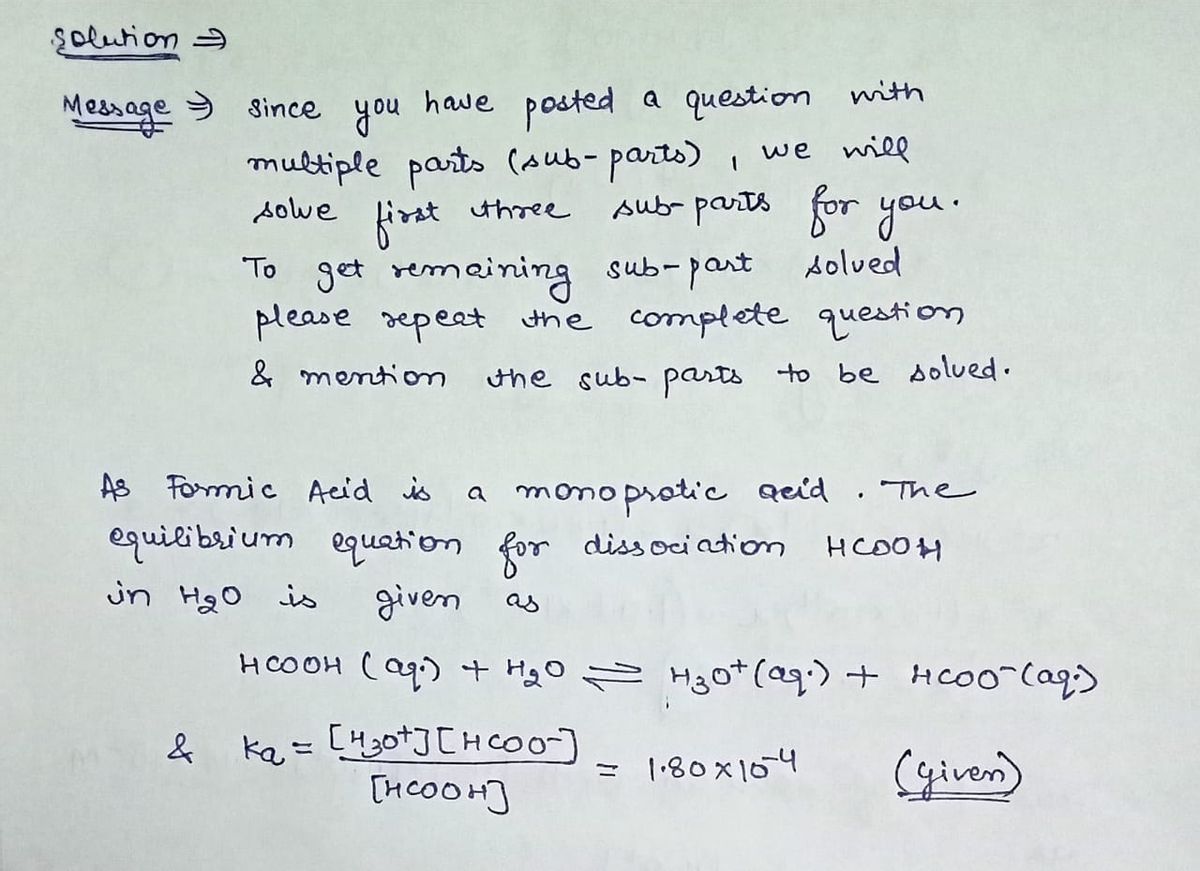 Solution ⇒
Message ⇒ Since you have posted a question with
multiple parts (sub-parts), we will
solve first three sub-parts for you.
To get remaining sub-part solved
please repeat the complete question
& mention the sub-parts to be solved.
As Formic Acid is a monoprotic acid. The
equilibrium equation for dissociation HCOOH
in H₂O is given as
HCOOH (aq.) + H₂O ⇌ H₃O⁺(aq.) + HCOO⁻(aq.)
& Ka = [H₃O⁺][HCOO⁻] / [HCOOH] = 1.80 × 10⁻⁴ (given)